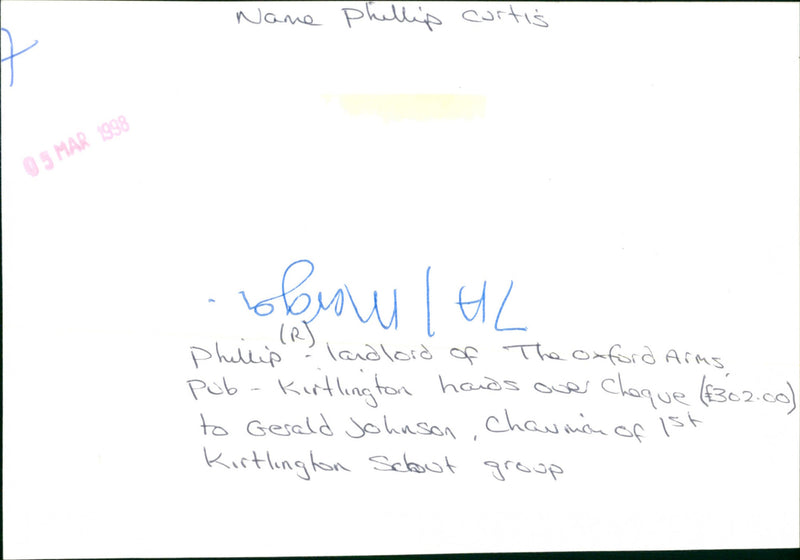 Name Phillip Curtis
05 MAR 1998
7A / Morgan
(R)
Phillip - landlord of The Oxford Arms,
Pub - Kirtlington hands over Cheque (£302.00)
to Gerald Johnson, Chairman of 1st
Kirtlington Scout group